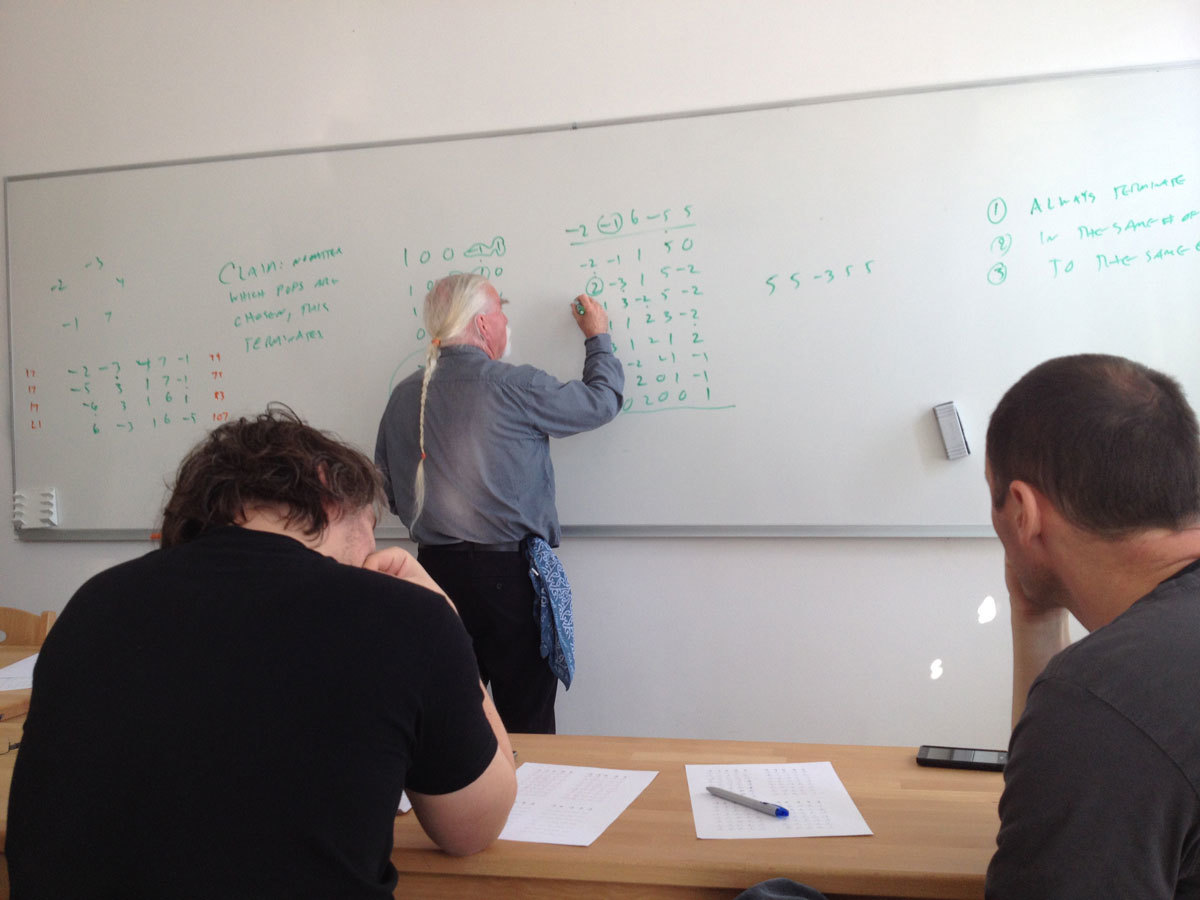 -3
-2 4
-1 7
17 -2 -3 4 7 -1 79
17 -5 3 1 7 -1 75
-6 3 1 6 1 83
21 6 -3 1 6 -5 107
CLAIM: NO MATTER
WHICH POPS ARE
CHOSEN, THIS
TERMINATES
1 0 0 -1 1
-2 -1 6 -5 5
-2 -1 1 5 0
2 -3 1 5 -2
3 -2 5 -2
1 2 3 -2
1 2 1 2
-2 1 -1
2 0 1 -1
0 2 0 0 1
5 5 -3 5 5
1 ALWAYS TERMINATE
2 IN THE SAME # OF
3 TO THE SAME